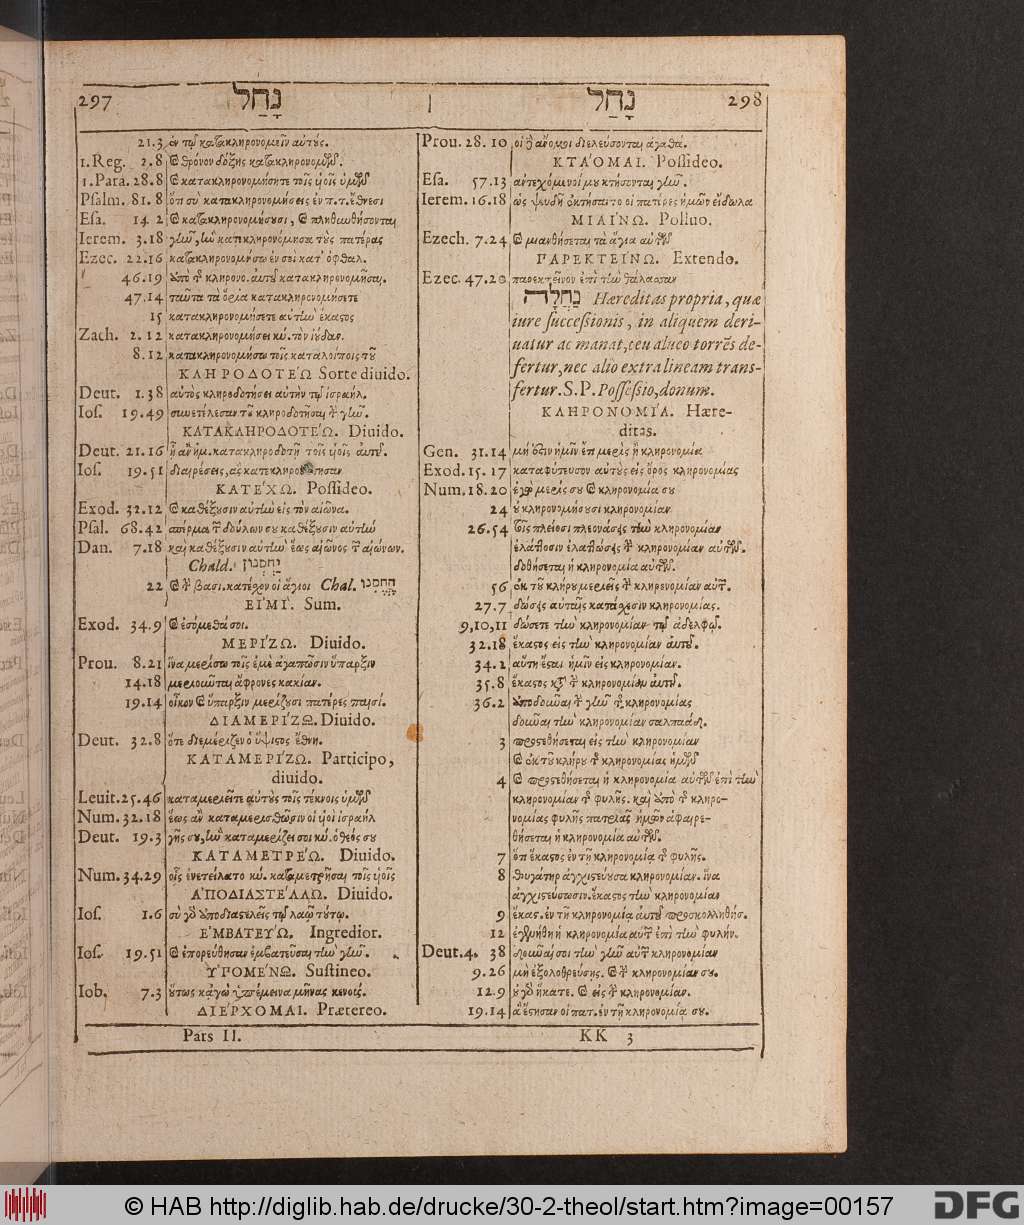 297 נָחַל
21.3 ἐν τῷ κατακληρονομεῖν αὐτούς.
1.Reg. 2.8 καὶ θρόνον δόξης κατακληρονομῶν.
1.Para. 28.8 καὶ κατακληρονομήσητε τοῖς υἱοῖς ὑμῶν
Psalm. 81.8 ὅτι σὺ κατακληρονομήσεις ἐν π.τ.ἔθνεσι
Esa. 14 2 καὶ κατακληρονομήσουσι, καὶ πληθυνθήσονται
Ierem. 3.18 γῆν, ἣν κατεκληρονόμησα τοὺς πατέρας
Ezec. 22.16 κατακληρονομήσω ἐν σοι κατ' ὀφθαλ.
46.19 ἀπὸ τῆς κληρονο. αὐτοῦ κατακληρονομῆσαι.
47.14 ταῦτα τὰ ὅρια κατακληρονομήσετε
15 κατακληρονομήσετε αὐτὴν ἕκαστος
Zach. 2.12 κατακληρονομήσει κύ. τὸν ἰούδαν.
8.12 κατακληρονομήσω τοῖς καταλοίποις τοῦ
ΚΛΗΡΟΔΟΤΈΩ Sorte diuido.
Deut. 1.38 αὐτὸς κληροδοτήσει αὐτὴν τῷ ἰσραήλ.
Ios. 19.49 συνετέλεσαν τοῦ κληροδοτῆσαι τὴν γῆν.
ΚΑΤΑΚΛΗΡΟΔΟΤΈΩ. Diuido.
Deut. 21.16 ᾗ ἂν ἡμ. κατακληροδοτῇ τοῖς υἱοῖς αὐτοῦ.
Ios. 19.51 διαιρέσεις, ἃς κατεκληροδότησαν
ΚΑΤΈΧΩ. Possideo.
Exod. 32.12 καὶ καθέξουσιν αὐτὴν εἰς τὸν αἰῶνα.
Psal. 68.42 σπέρμα τῶν δούλων σου καθέξουσιν αὐτὴν
Dan. 7.18 καὶ καθέξουσιν αὐτὴν ἕως αἰῶνος τῶν αἰώνων.
Chald. יַחְסְנוּן
22 καὶ τὴν βασι. κατέχον οἱ ἅγιοι Chal. הֶחֱסִנוּ
ΕἸΜΊ. Sum.
Exod. 34.9 καὶ ἐσόμεθα σοι.
ΜΕΡΊΖΩ. Diuido.
Prou. 8.21 ἵνα μερίσω τοῖς ἐμὲ ἀγαπῶσιν ὕπαρξιν
14.18 μεριοῦνται ἄφρονες κακίαν.
19.14 οἶκον καὶ ὕπαρξιν μερίζουσι πατέρες παισί.
ΔΙΑΜΕΡΊΖΩ. Diuido.
Deut. 32.8 ὅτε διεμέριζεν ὁ ὕψιστος ἔθνη.
ΚΑΤΑΜΕΡΊΖΩ. Participo,
diuido.
Leuit. 25.46 καταμεριεῖτε αὐτοὺς τοῖς τέκνοις ὑμῶν
Num. 32.18 ἕως ἂν καταμερισθῶσιν οἱ υἱοὶ ἰσραήλ
Deut. 19.3 γῆς σου, ἣν καταμερίζει σοι κύ. ὁ θεός σου
ΚΑΤΑΜΕΤΡΈΩ. Diuido.
Num. 34.29 οἷς ἐνετείλατο κύ. καταμετρῆσαι τοῖς υἱοῖς
ἈΠΟΔΙΑΣΤΈΛΛΩ. Diuido.
Ios. 1.6 σὺ γὰρ ἀποδιαστελεῖς τῷ λαῷ τούτῳ.
ἘΜΒΑΤΕΎΩ. Ingredior.
Ios. 19.51 καὶ ἐπορεύθησαν ἐμβατεῦσαι τὴν γῆν.
ὙΠΟΜΈΝΩ. Sustineo.
Iob. 7.3 οὕτως κἀγὼ ὑπέμεινα μῆνας κενούς.
ΔΙΈΡΧΟΜΑΙ. Prætereo.
Pars II.
נָחַל 298
Prou. 28.10 οἱ δὲ ἄνομοι διελεύσονται ἀγαθά.
ΚΤΆΟΜΑΙ. Possideo.
Esa. 57.13 ἀντεχόμενοί μου κτήσονται γῆν.
Ierem. 16.18 ὡς ψευδῆ ἐκτήσαντο οἱ πατέρες ἡμῶν εἴδωλα
ΜΙΑΊΝΩ. Polluo.
Ezech. 7.24 καὶ μιανθήσεται τὰ ἅγια αὐτῶν
ΠΑΡΕΚΤΕΊΝΩ. Extendo.
Ezec. 47.20 παρεκτείνον ἐπὶ τὴν θάλασσαν
נַחֲלָה Hæreditas propria, quæ
iure successionis, in aliquem deri-
uatur ac manat, ceu alueo torrēs de-
fertur, nec alio extra lineam trans-
fertur. S.P. Possessio, donum.
ΚΛΗΡΟΝΟΜΊΑ. Hære-
ditas.
Gen. 31.14 μή ἐστιν ἡμῖν ἔτι μερὶς ἢ κληρονομία
Exod. 15.17 καταφύτευσον αὐτοὺς εἰς ὄρος κληρονομίας
Num. 18.20 ἐγὼ μερίς σου καὶ κληρονομία σου
24 οὐ κληρονομήσουσι κληρονομίαν
26.54 τοῖς πλείοσι πλεονάσεις τὴν κληρονομίαν
ἐλάττοσιν ἐλαττώσεις τὴν κληρονομίαν αὐτῶν.
δοθήσεται ἡ κληρονομία αὐτῶν.
56 ἐκ τοῦ κλήρου μεριεῖς τὴν κληρονομίαν αὐτῶν.
27.7 δώσεις αὐταῖς κατάχεσιν κληρονομίας.
9,10,11 δώσετε τὴν κληρονομίαν τῷ ἀδελφῷ.
32.18 ἕκαστος εἰς τὴν κληρονομίαν αὐτοῦ.
34.2 αὕτη ἔσται ὑμῖν εἰς κληρονομίαν.
35.8 ἕκαστος κατὰ τὴν κληρονομίαν αὐτοῦ.
36.2 ἀποδοῦναι τὴν γῆν τῆς κληρονομίας
δοῦναι τὴν κληρονομίαν σαλπαάδ.
3 προστεθήσεται εἰς τὴν κληρονομίαν
καὶ ἐκ τοῦ κλήρου τῆς κληρονομίας ἡμῶν
4 καὶ προστεθήσεται ἡ κληρονομία αὐτῶν ἐπὶ τὴν
κληρονομίαν τῆς φυλῆς. καὶ ἀπὸ τῆς κληρο-
νομίας φυλῆς πατριᾶς ἡμῶν ἀφαιρε-
θήσεται ἡ κληρονομία αὐτῶν.
7 ὅτι ἕκαστος ἐν τῇ κληρονομίᾳ τῆς φυλῆς.
8 θυγάτηρ ἀγχιστεύουσα κληρονομίαν. ἵνα
ἀγχιστεύσωσιν. ἕκαστος τὴν κληρονομίαν
9 ἕκασ. ἐν τῇ κληρονομίᾳ αὐτοῦ προσκολληθήσ.
12 ἐγενήθη ἡ κληρονομία αὐτῶν ἐπὶ τὴν φυλήν.
Deut. 4. 38 δοῦναί σοι τὴν γῆν αὐτῶν κληρονομίαν
9.26 μὴ ἐξολοθρεύσῃς. καὶ τὴν κληρονομίαν σου.
12.9 οὐ γὰρ ἥκατε. καὶ εἰς τὴν κληρονομίαν.
19.14 ἃ ἔστησαν οἱ πατ. ἐν τῇ κληρονομίᾳ σου.
KK 3
© HAB http://diglib.hab.de/drucke/30-2-theol/start.htm?image=00157
DFG